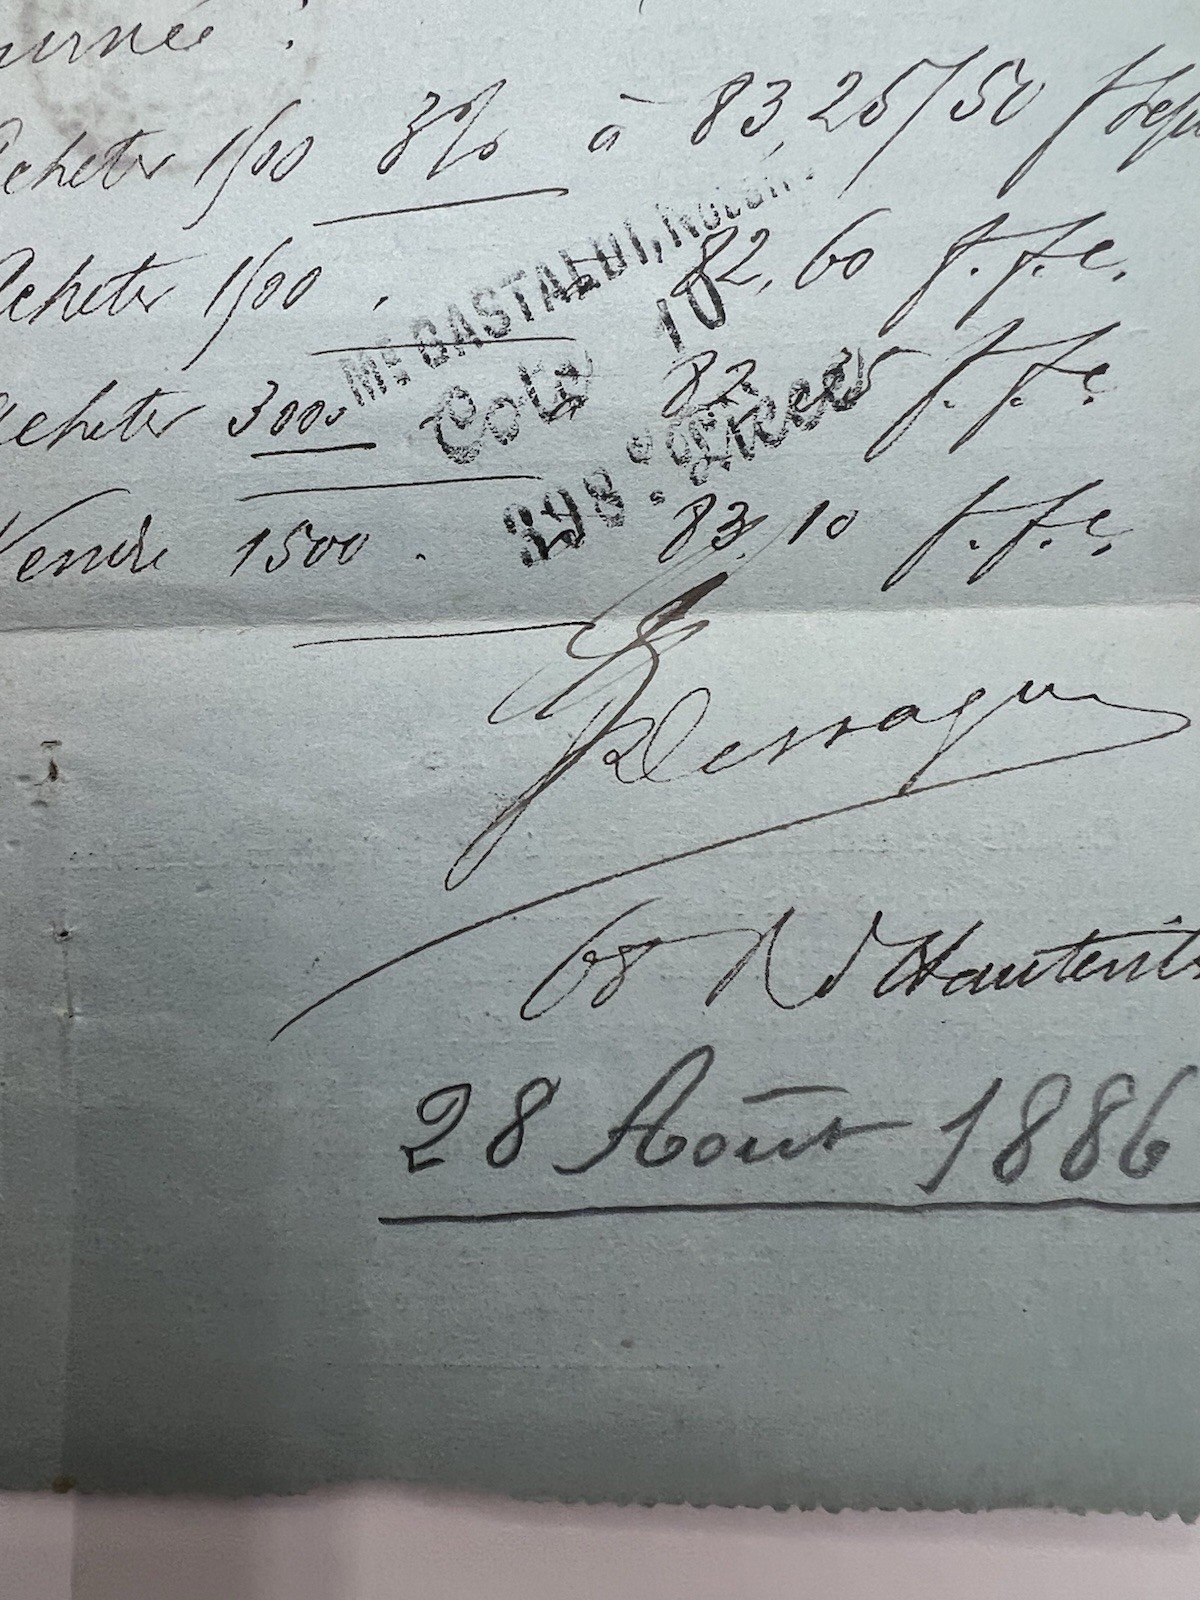 Acheter 1500 3% à 83,25/50
Acheter 1500 . 82,60 f. f. c.
Acheter 3000 82 35 f. f. c.
Vendre 1500 . 83,10 f. f. c.
Me GASTALDI, Notaire
Cote 10
398e. Pièce
68 R d'Hautevil
28 Août 1886